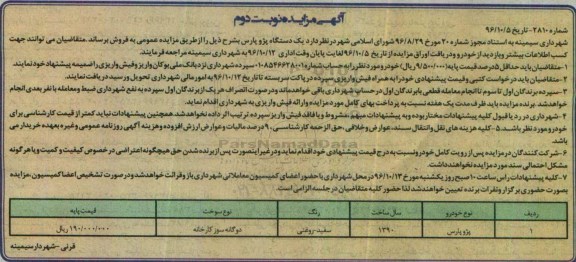 آگهی مزایده نوبت دوم
شماره ۲۸۱۰- تاریخ ۹۶/۱۰/۵
شهرداری سیمینه به استناد مجوز شماره ۲۰ مورخ ۹۶/۸/۲۹ شورای اسلامی شهر در نظر دارد یک دستگاه پژو پارس بشرح ذیل را از طریق مزایده عمومی به فروش برساند. متقاضیان می توانند جهت
کسب اطلاعات بیشتر و بازدید از خودرو و دریافت اوراق مزایده از تاریخ ۹۶/۱۰/۵ لغایت پایان وقت اداری ۹۶/۱۰/۱۲ به شهرداری سیمینه مراجعه فرمایند.
۱- متقاضیان باید حداقل ۵ درصد قیمت پایه (۹/۵۰۰/۰۰۰ ریال) خودرو مورد نظر را به حساب شماره ۰۱۰۸۵۴۶۶۳۸۰۰۱ سپرده شهرداری نزد بانک ملی بوکان واریز و فیش واریزی را ضمیمه پیشنهاد خود نمایند.
۲- متقاضیان باید در خواست کتبی و قیمت پیشنهادی خود را به همراه فیش واریزی سپرده در پاکت سربسته تا تاریخ ۹۶/۱۰/۱۲ به امور مالی شهرداری تحویل و رسید دریافت نمایند.
۳- سپرده برندگان اول تا سوم تا انجام معامله قطعی با برندگان اول در حساب شهرداری باقی خواهد ماند و در صورت انصراف هر یک از برندگان اول سپرده به نفع شهرداری ضبط و معامله با نفر بعدی انجام
خواهد شد. برنده مزایده باید ظرف مدت یک هفته نسبت به پرداخت بهای کامل مورد مزایده و ارائه فیش واریزی به شهرداری اقدام نماید.
۴- شهرداری در رد یا قبول کلیه پیشنهادات مختار بوده و به پیشنهادات مبهم، مشروط و یا فاقد فیش واریز سپرده ترتیب اثر داده نخواهد شد. همچنین پیشنهادات نباید کمتر از قیمت کارشناسی برای
خودرو مورد نظر باشد. ۵- کلیه هزینه های نقل و انتقال سند، عوارض و خلافی، حق الزحمه کارشناسی، ۹ درصد مالیات و عوارض ارزش افزوده و هزینه آگهی روزنامه عمومی و غیره بعهده خریدار می
باشد.
۶- شرکت کنندگان در مزایده پس از رویت کامل خودرو نسبت به درج قیمت پیشنهادی خود اقدام نماید و در غیر اینصورت پس از برنده شدن حق هیچگونه اعتراضی در خصوص کیفیت و کمیت و یا هر گونه
مشکل احتمالی سند مورد مزایده نخواهند داشت.
۷- کلیه پیشنهادات راس ساعت ۱۰ صبح روز یکشنبه مورخ ۹۶/۱۰/۱۳ در محل شهرداری با حضور اعضای کمیسیون معاملاتی شهرداری باز و قرائت خواهد شد و در صورت تشخیص اعضا کمیسیون مزایده
بصورت حضوری برگزار و نفرات برنده تعیین خواهند شد لذا حضور کلیه متقاضیان در جلسه الزامی است.
ردیف نوع خودرو سال ساخت رنگ نوع سوخت قیمت پایه
۱ پژو پارس ۱۳۹۰ سفید-روغنی دوگانه سوز کارخانه ۱۹۰/۰۰۰/۰۰۰ ریال
قرنی - شهردار سیمینه